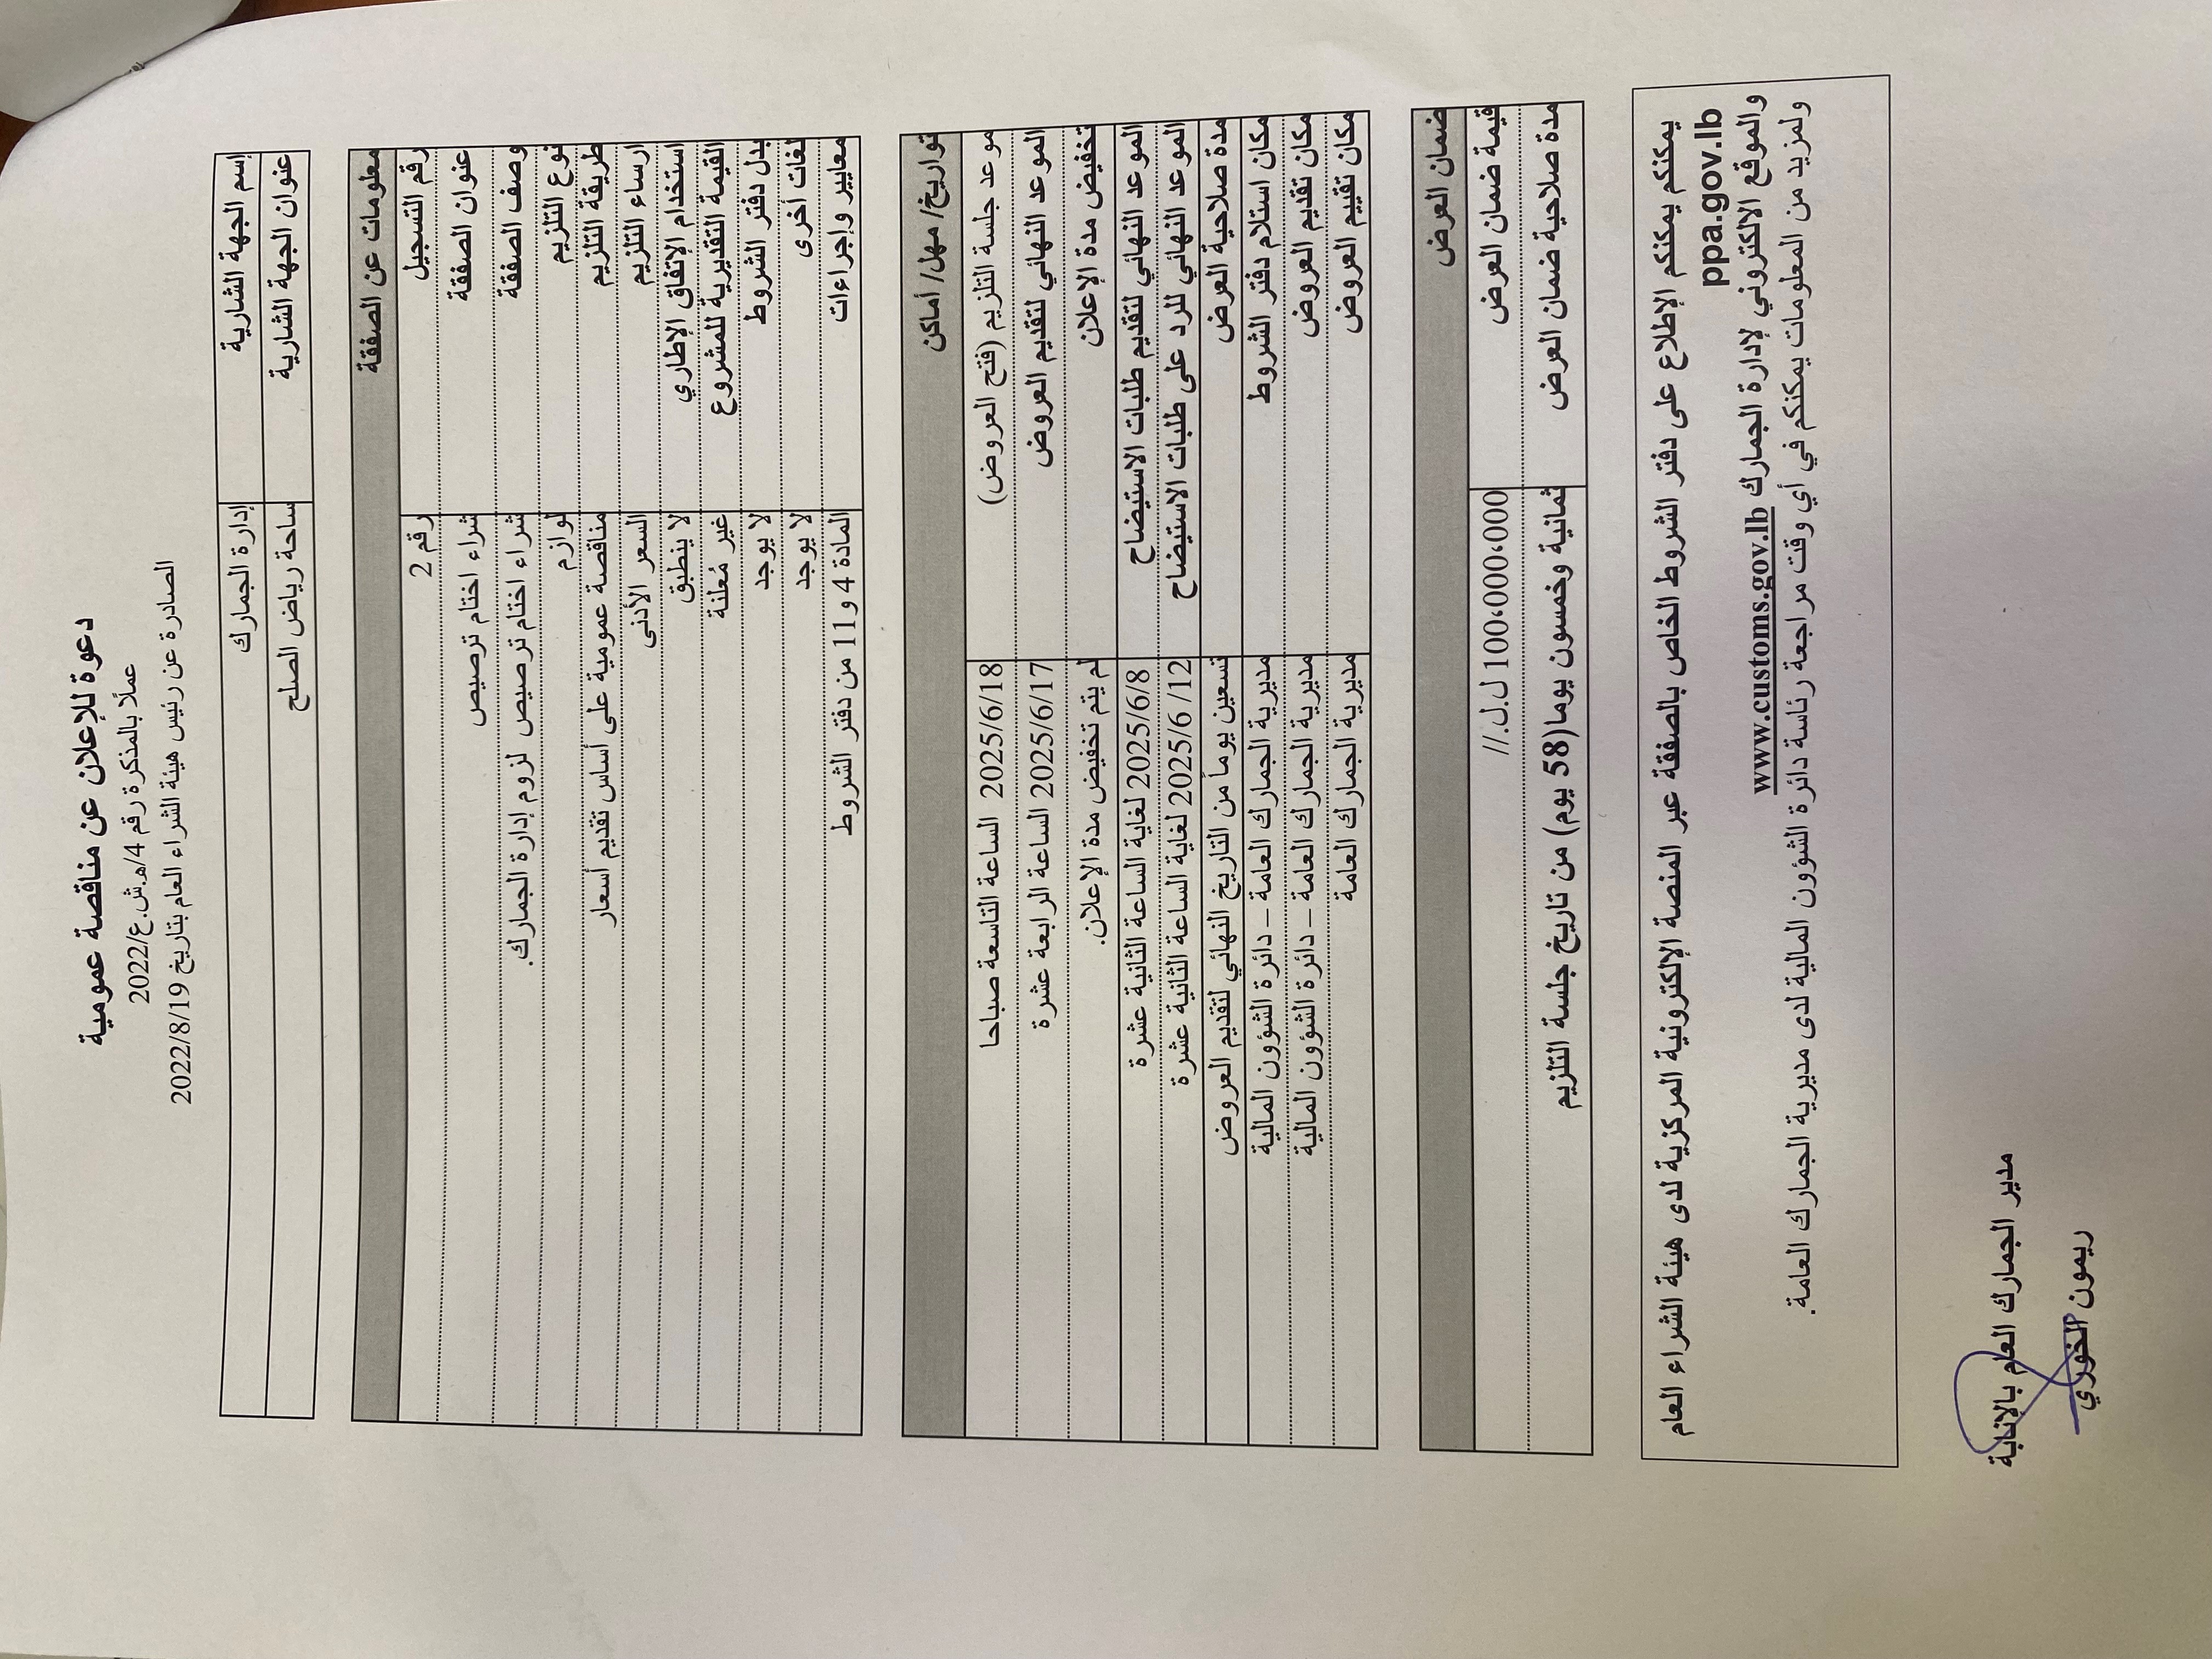 دعوة للإعلان عن مناقصة عمومية
عملاً بالمذكرة رقم 4/ه.ش.ع/2022
الصادرة عن رئيس هيئة الشراء العام بتاريخ 2022/8/19
إسم الجهة الشارية إدارة الجمارك
عنوان الجهة الشارية ساحة رياض الصلح
معلومات عن الصفقة
رقم التسجيل رقم 2
عنوان الصفقة شراء اختام ترصيص
وصف الصفقة شراء اختام ترصيص لزوم إدارة الجمارك.
نوع التلزيم لوازم
طريقة التلزيم مناقصة عمومية على أساس تقديم أسعار
ارساء التلزيم السعر الأدنى
استخدام الإتفاق الإطاري لا ينطبق
القيمة التقديرية للمشروع غير مُعلنة
بدل دفتر الشروط لا يوجد
لغات أخرى لا يوجد
معايير وإجراءات المادة 4 و11 من دفتر الشروط
تواريخ/ مهل/ أماكن
موعد جلسة التلزيم (فتح العروض) 2025/6/18 الساعة التاسعة صباحا
الموعد النهائي لتقديم العروض 2025/6/17 الساعة الرابعة عشرة
تخفيض مدة الإعلان لم يتم تخفيض مدة الإعلان.
الموعد النهائي لتقديم طلبات الاستيضاح 2025/6/8 لغاية الساعة الثانية عشرة
الموعد النهائي للرد على طلبات الاستيضاح 2025/6 /12 لغاية الساعة الثانية عشرة
مدة صلاحية العرض تسعين يوماً من التاريخ النهائي لتقديم العروض
مكان استلام دفتر الشروط مديرية الجمارك العامة – دائرة الشؤون المالية
مكان تقديم العروض مديرية الجمارك العامة – دائرة الشؤون المالية
مكان تقييم العروض مديرية الجمارك العامة
ضمان العرض
قيمة ضمان العرض 100،000،000 ل.ل.//
مدة صلاحية ضمان العرض ثمانية وخمسون يوما(58 يوم) من تاريخ جلسة التلزيم
يمكنكم يمكنكم الإطلاع على دفتر الشروط الخاص بالصفقة عبر المنصة الإلكترونية المركزية لدى هيئة الشراء العام
ppa.gov.lb
والموقع الالكتروني لإدارة الجمارك www.customs.gov.lb
ولمزيد من المعلومات يمكنكم في أي وقت مراجعة رئاسة دائرة الشؤون المالية لدى مديرية الجمارك العامة.
مدير الجمارك العام بالإنابة
ريمون الخوري